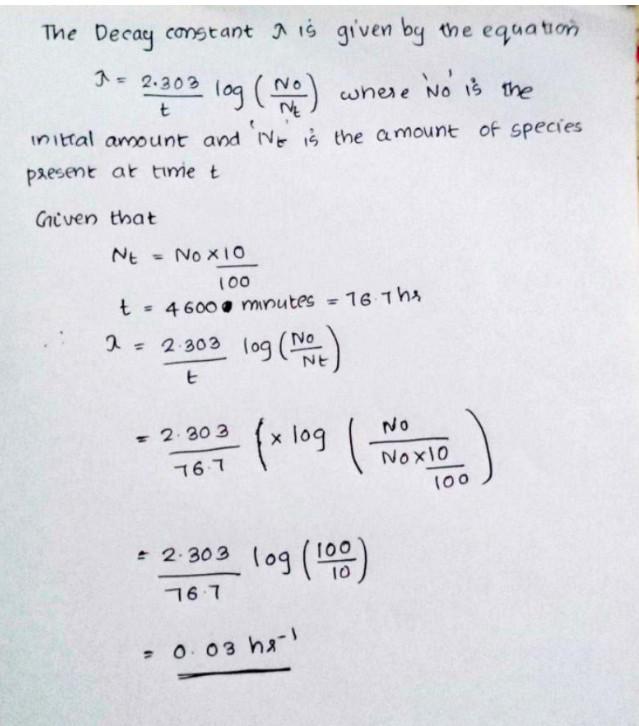 The Decay constant λ is given by the equation
λ = 2.303/t log (No/Nt) where 'No' is the
initial amount and 'Nt' is the amount of species
present at time t
Given that
Nt = No x 10/100
t = 4600 minutes = 76.7 hr
λ = 2.303/t log (No/Nt)
= 2.303/76.7 { x log (No/(No x 10/100))
= 2.303/76.7 log (100/10)
= 0.03 hr⁻¹